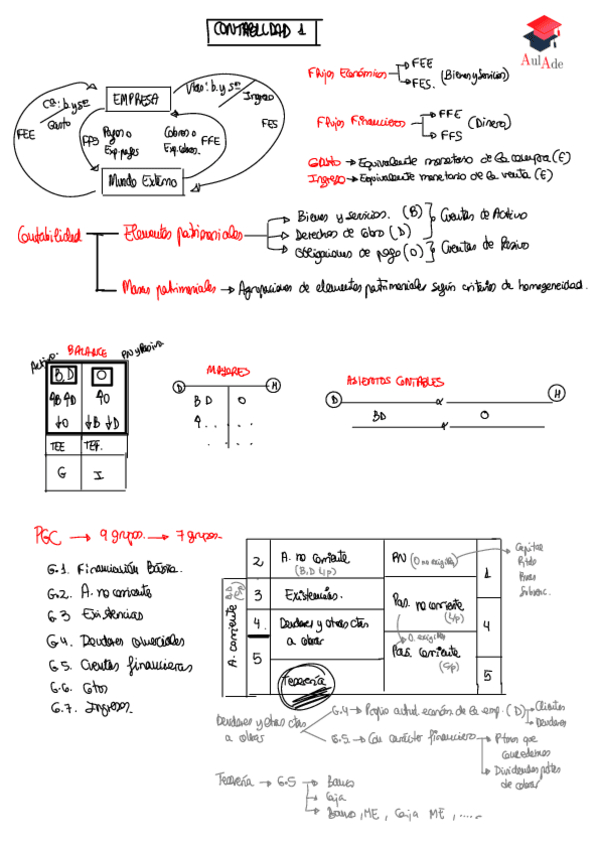 CONTABILIDAD 1
AulAde
Flujos Económicos
FEE
FES.
(Bienes y Servicios)
Flujos Financieros
FFE
FFS
(Dinero)
Gasto → Equivalente monetario de la compra (E)
Ingreso → Equivalente monetario de la venta (E)
Cª: b. y sº
Gasto
EMPRESA
Vta: b. y sº
Ingreso
FEE
FFS
Pagos o
Exp. pagos
Cobros o
Exp. cobros.
FFE
FES
Mundo Externo
Contabilidad
Elementos patrimoniales
Bienes y servicios. (B)
Derechos de cobro (D)
Cuentas de Activo
Obligaciones de pago (O)
Cuentas de Pasivo
Masas patrimoniales → Agrupaciones de elementos patrimoniales según criterios de homogeneidad.
BALANCE
Activo
PN y Pasivo
B, D
O
↑B ↑D
↑O
↓O
↓B ↓D
TEE
TEF.
G
I
MAYORES
D
H
B D
O
ASIENTOS CONTABLES
D
a
H
BD
O
a
PGC → 9 grupos → 7 grupos
G.1. Financiación Básica.
G.2. A. no corriente
G.3 Existencias
G.4. Deudores comerciales
G.5. Cuentas financieras
G.6. Gtos
G.7. Ingresos.
A. corriente
2
A. no corriente
(B, D L/p)
PN (O no exigible)
1
3
Existencias.
Pas. no corriente
(L/p)
4.
Deudores y otras ctas
a cobrar
4
O. exigible
5
Tesorería
Pas. corriente
(C/p)
5
Capital
Rvas
Subvenc.
Deudores y otras ctas
a cobrar
G.4 → Propio actvd económ. de la emp. (D)
Clientes
Deudores
G.5. → Con carácter financiero
Ptmos que
concedemos
Dividendos ptes
de cobrar
Tesorería → G.5
Banco
Caja
Banco, ME, Caja ME, .....